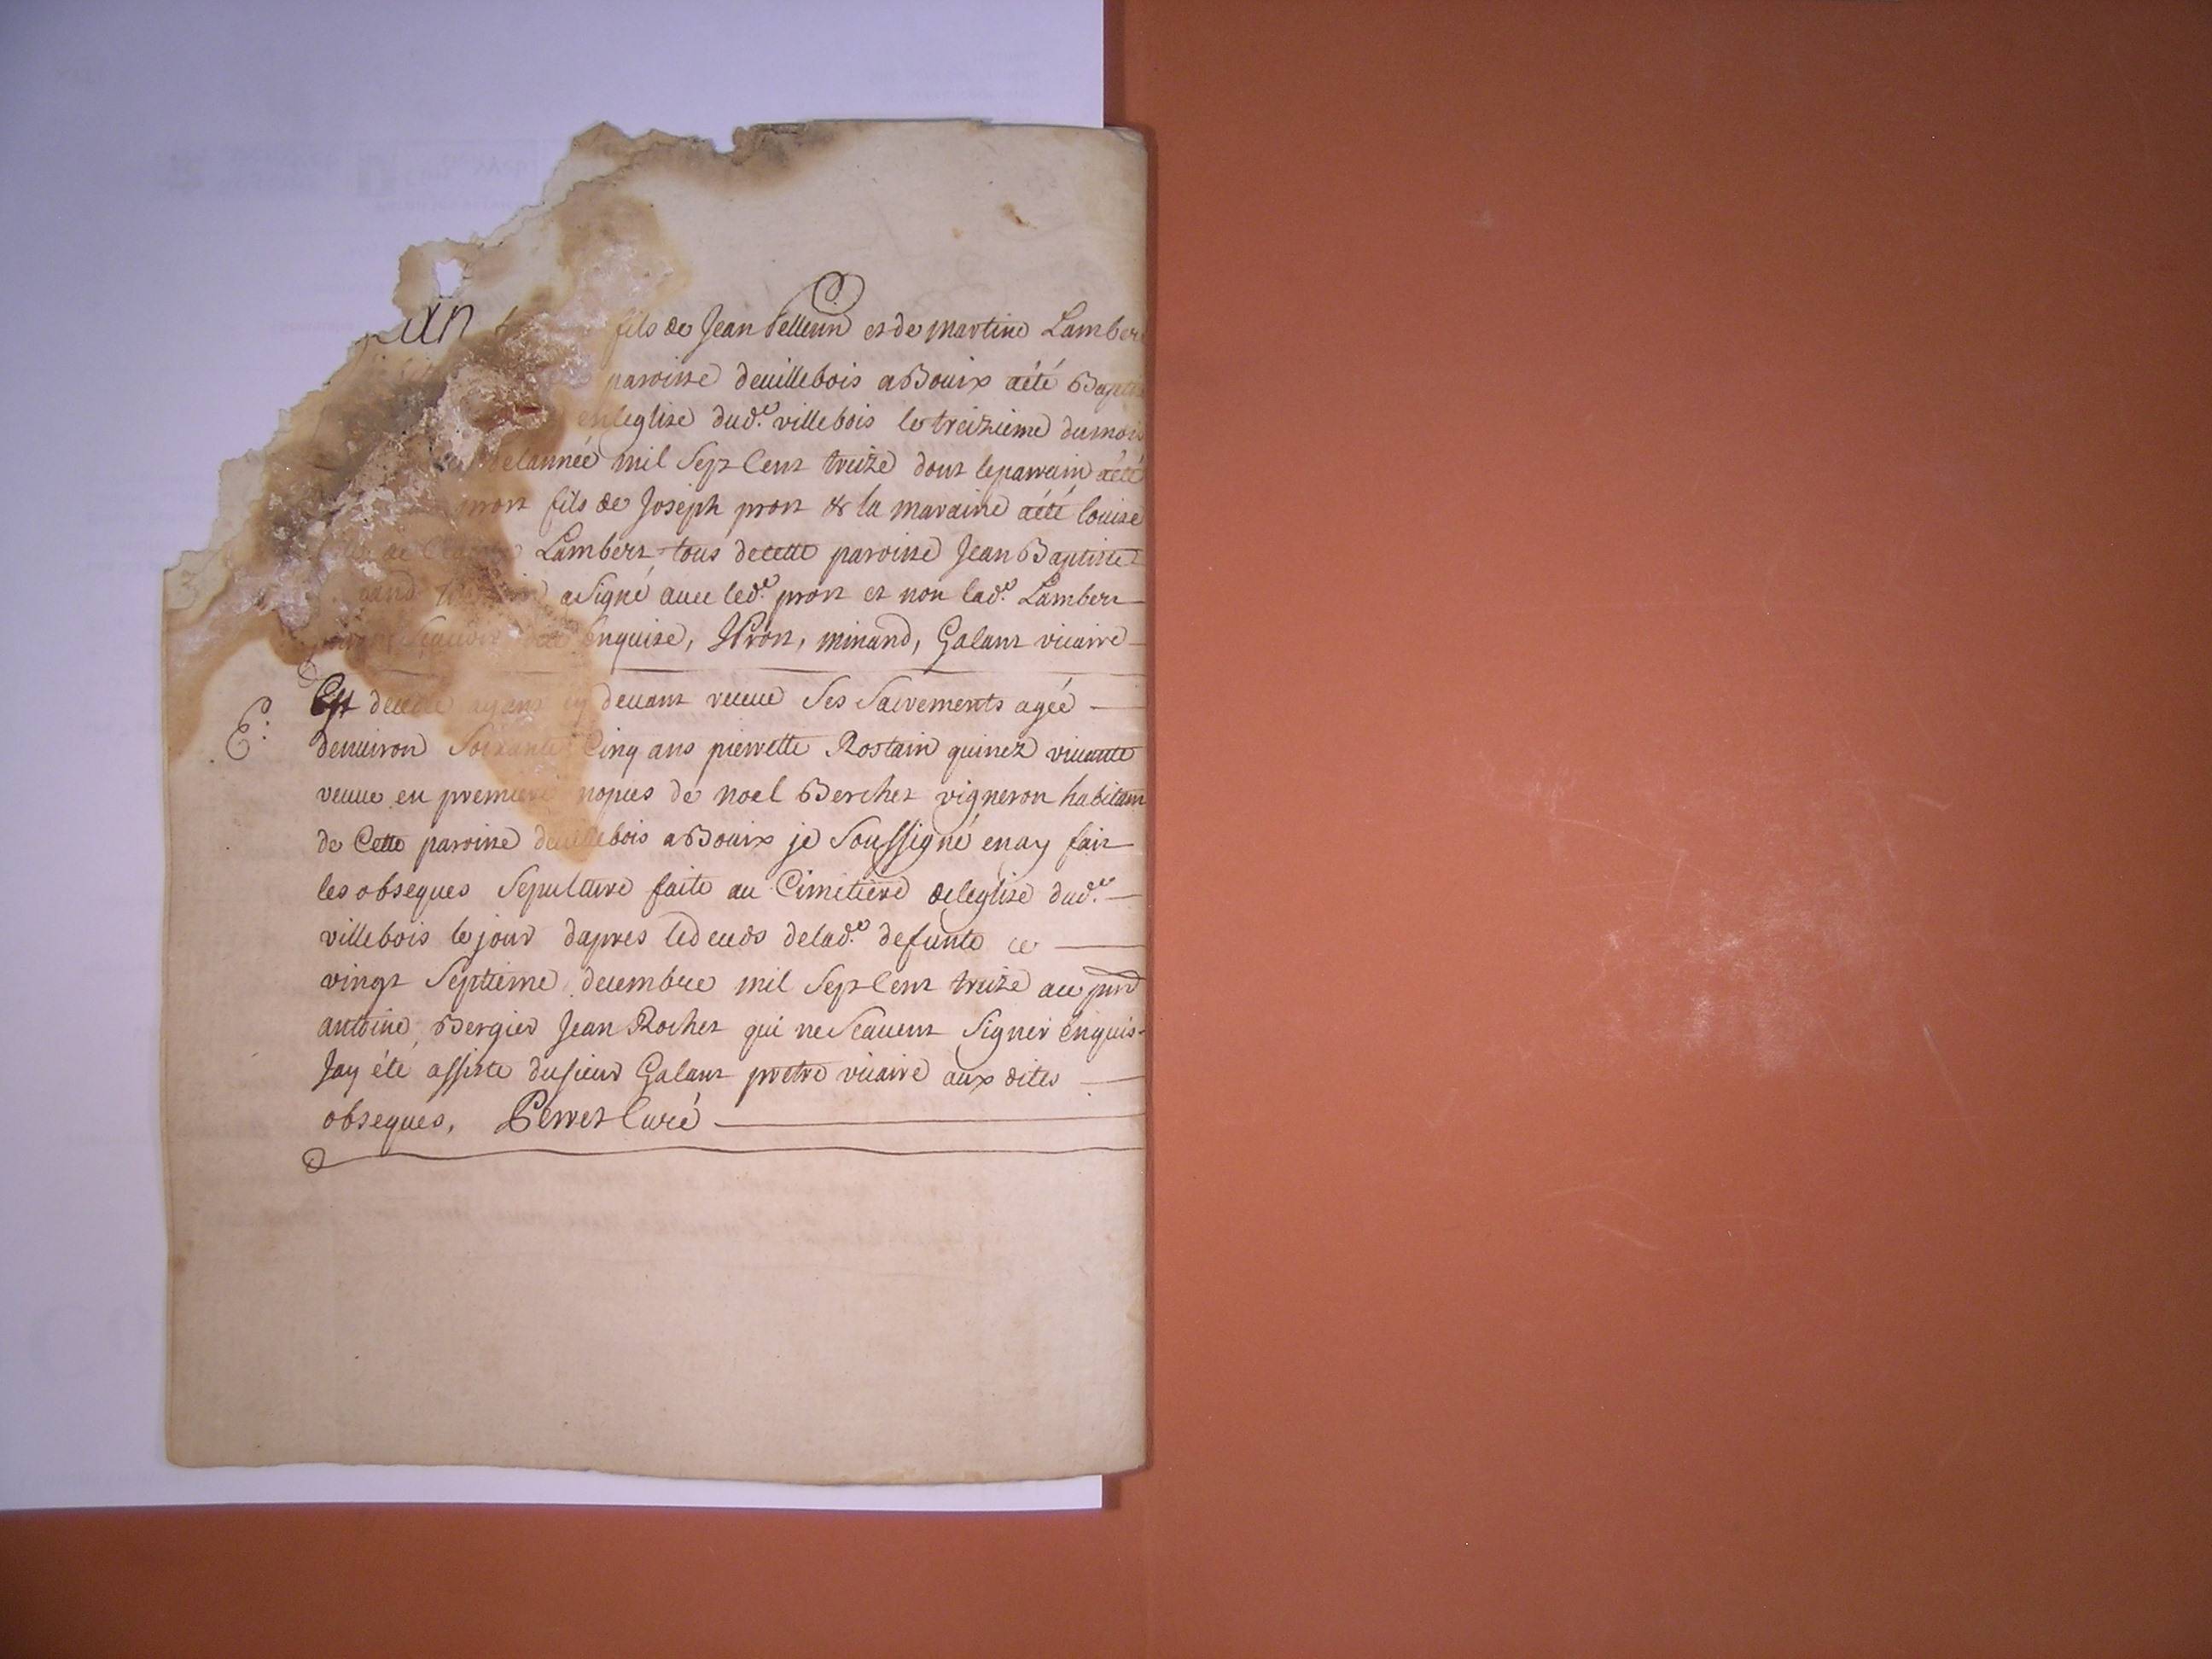 fils de Jean Pellerin et de martine Lamber
paroisse deuillebois a Bouix aété Bapti
en leglise dud.e villebois le treizieme dumois
delannée mil Sept Cent treize dont leparrain aété
pront fils de Joseph pront & la maraine aété louise
Lambert tous decette paroisse Jean Baptiste
a Signé auec led.e pront et non lad.e Lambert
enquise, JPront, minand, Galant vicaire
Est decede ayant cy deuant receue Ses Sacrements agée
E.
denuiron Soixante Cinq ans pierrette Rostain quinez viuante
veuue en premiere nopces de noel Berchet vigneron habitant
de Cette paroisse deuillebois a Bouix je Soussigné enay fait
les obseques Sepulture faite au Cimetiere deleglise dud.e
villebois le jour dapres ledeceds delad.e defunte ce
vingt Septieme decembre mil Sept Cent treize au pnt
antoine Bergier Jean Rochet qui ne Scauent Signer enquis
Jay été assiste dusieur Galant pretre vicaire aux dites
obseques, Perret Curé